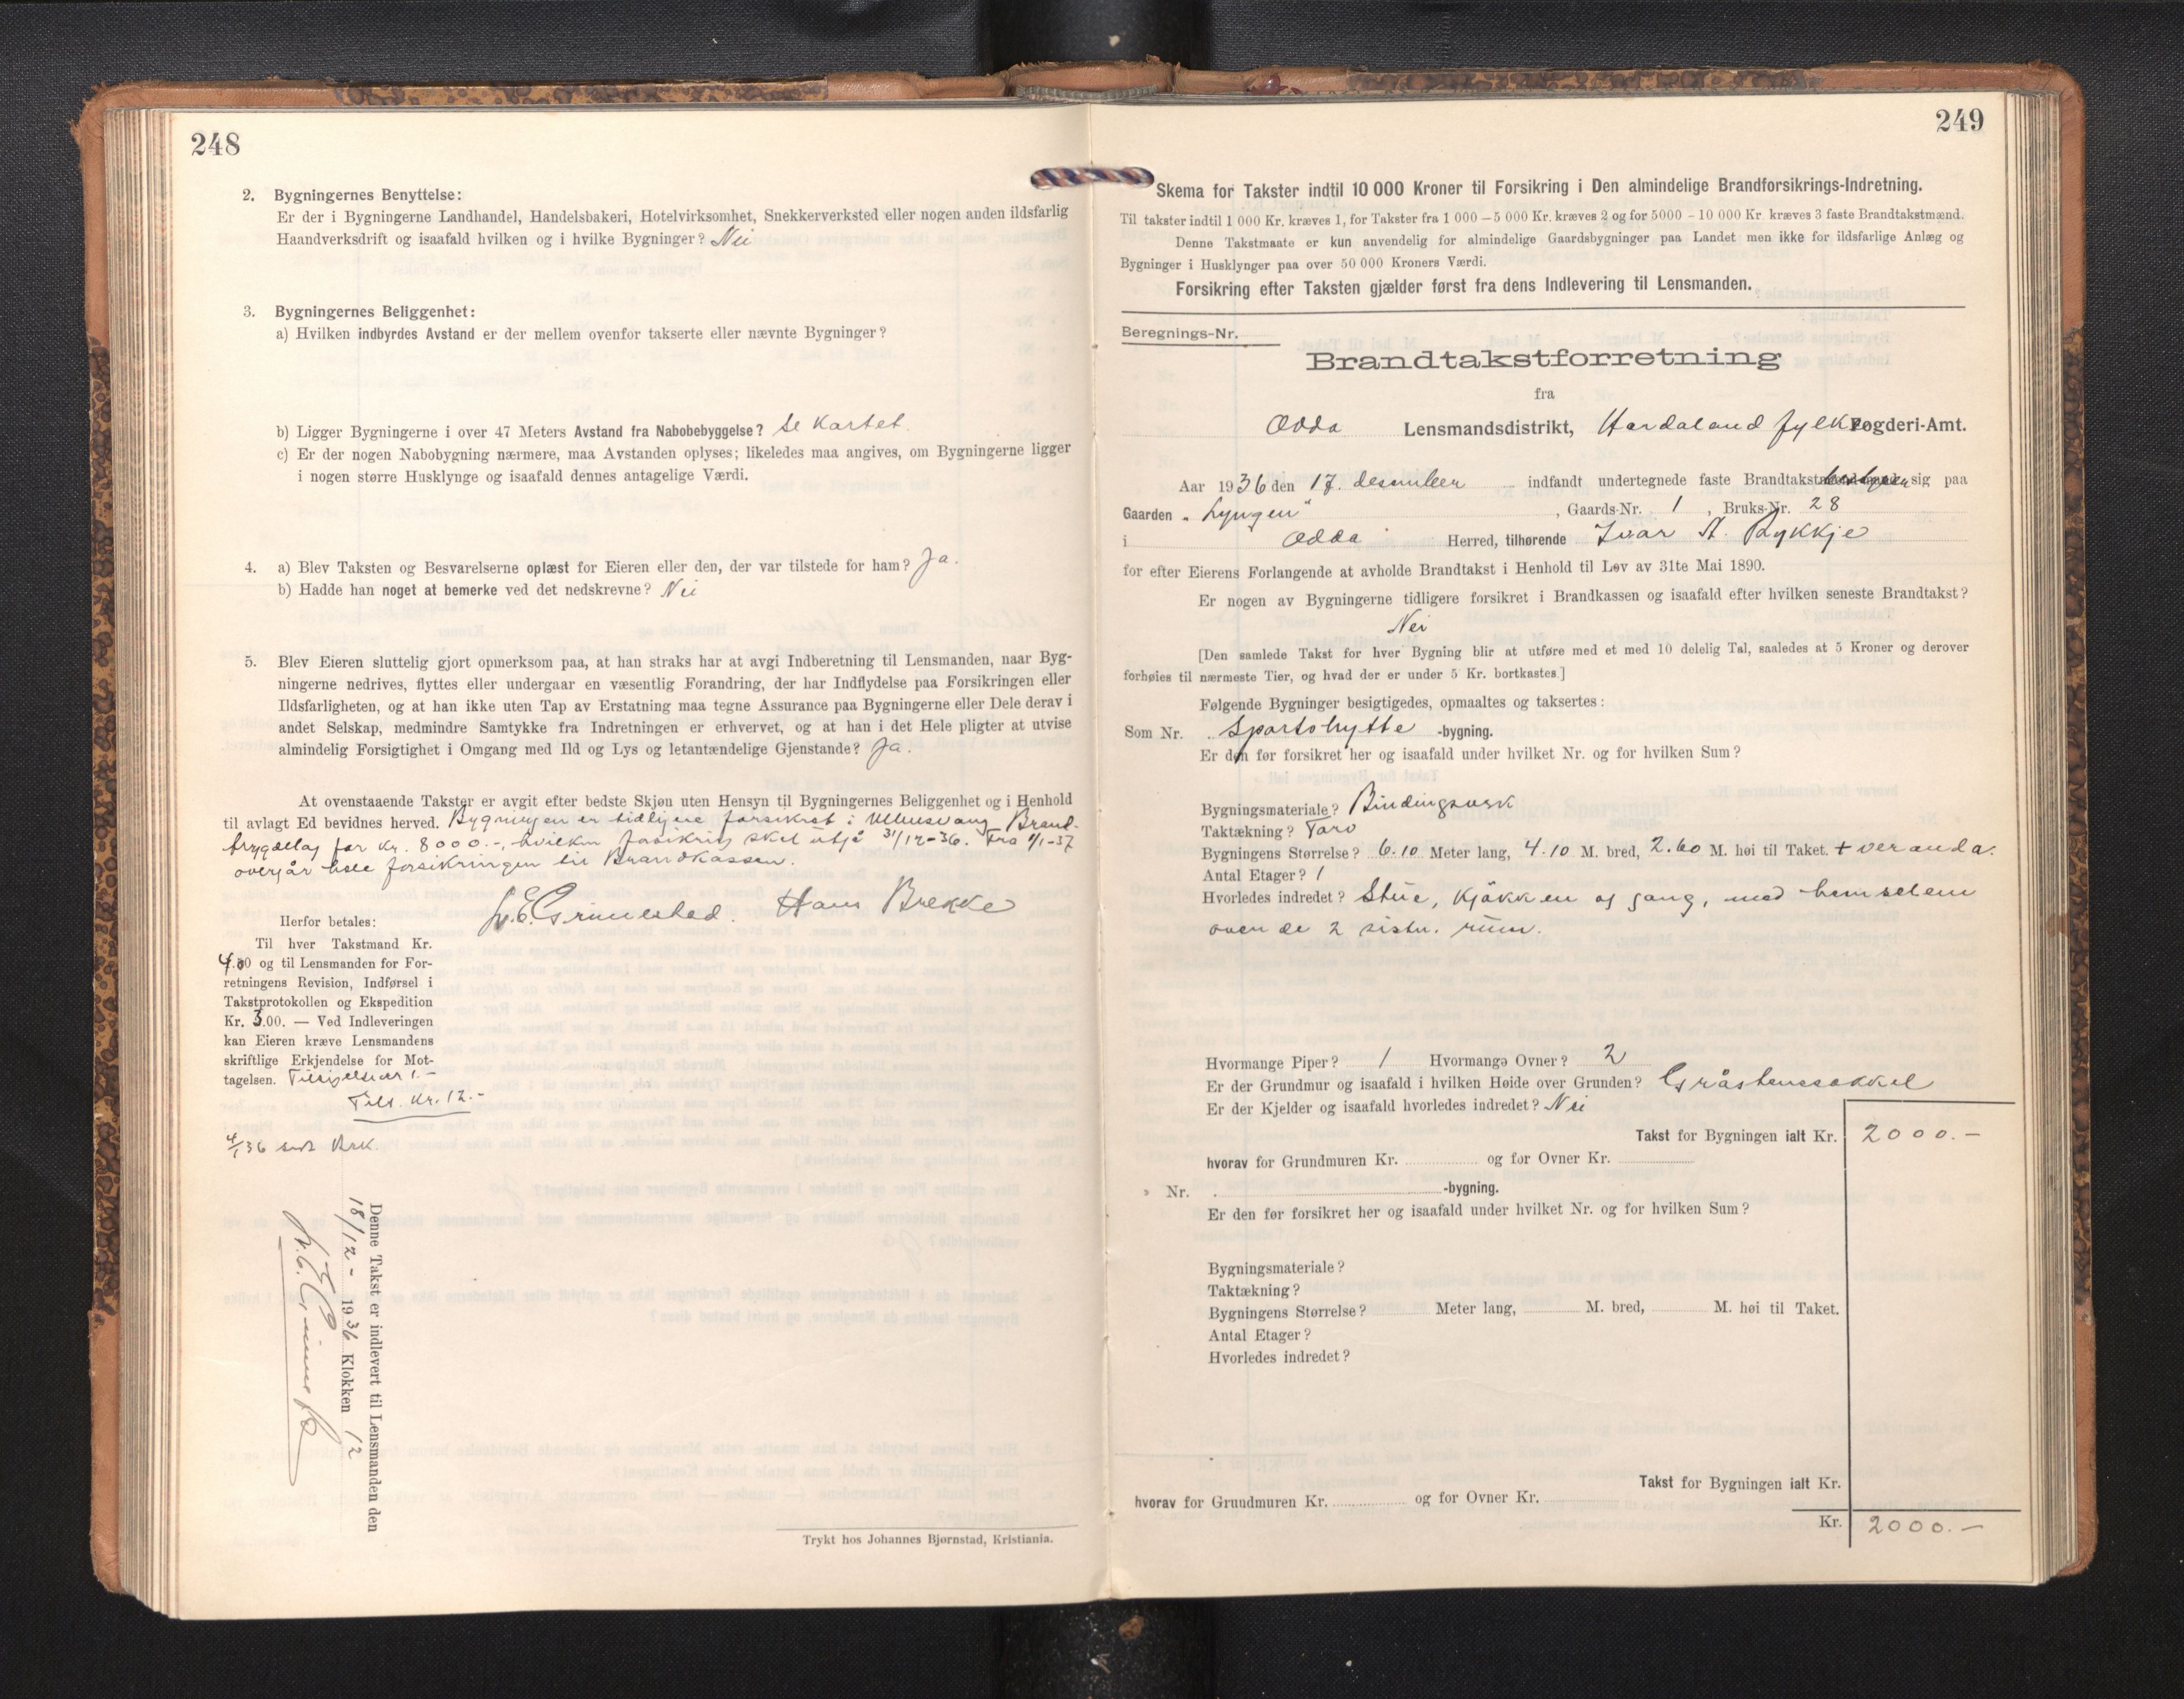 248
2. Bygningernes Benyttelse:
Er der i Bygningerne Landhandel, Handelsbakeri, Hotelvirksomhet, Snekkerverksted eller nogen anden ildsfarlig
Haandverksdrift og isaafald hvilken og i hvilke Bygninger? Nei
3. Bygningernes Beliggenhet:
a) Hvilken indbyrdes Avstand er der mellem ovenfor takserte eller nævnte Bygninger?
b) Ligger Bygningerne i over 47 Meters Avstand fra Nabobebyggelse? Se Kartet.
c) Er der nogen Nabobygning nærmere, maa Avstanden oplyses; likeledes maa angives, om Bygningerne ligger
i nogen større Husklynge og isaafald dennes antagelige Værdi.
4. a) Blev Taksten og Besvarelserne oplæst for Eieren eller den, der var tilstede for ham? Ja.
b) Hadde han noget at bemerke ved det nedskrevne? Nei
5. Blev Eieren sluttelig gjort opmerksom paa, at han straks har at avgi Indberetning til Lensmanden, naar Byg-
ningerne nedrives, flyttes eller undergaar en væsentlig Forandring, der har Indflydelse paa Forsikringen eller
Ildsfarligheten, og at han ikke uten Tap av Erstatning maa tegne Assurance paa Bygningerne eller Dele derav i
andet Selskap, medmindre Samtykke fra Indretningen er erhvervet, og at han i det Hele pligter at utvise
almindelig Forsigtighet i Omgang med Ild og Lys og letantændelige Gjenstande? Ja.
At ovenstaaende Takster er avgit efter bedste Skjøn uten Hensyn til Bygningernes Beliggenhet og i Henhold
til avlagt Ed bevidnes herved. Bygningen er tidligere forsikret i Ullensvang Brand-
trygdelag for kr. 8000.-, hvilken forsikring skal utgå 31/12-36. Fra 1/1-37
overgår hele forsikringen til Brandkassen.
L. E. Grimestad. Hans Brekke
Herfor betales:
Til hver Takstmand Kr.
4.00 og til Lensmanden for For-
retningens Revision, Indførsel i
Takstprotokollen og Ekspedition
Kr. 3.00. — Ved Indleveringen
kan Eieren kræve Lensmandens
skriftlige Erkjendelse for Mot-
tagelsen. Tilsigelser 1.-
Tils. Kr. 12.-
36 sendt Brk.
Denne Takst er indlevert til Lensmanden den
18/12- 1936 Klokken 12
L. E. Grimestad
Trykt hos Johannes Bjørnstad, Kristiania.
249
Skema for Takster indtil 10 000 Kroner til Forsikring i Den almindelige Brandforsikrings-Indretning.
Til takster indtil 1 000 Kr. kræves 1, for Takster fra 1 000 – 5 000 Kr. kræves 2 og for 5000 – 10 000 Kr. kræves 3 faste Brandtakstmænd.
Denne Takstmaate er kun anvendelig for almindelige Gaardsbygninger paa Landet men ikke for ildsfarlige Anlæg og
Bygninger i Husklynger paa over 50 000 Kroners Værdi.
Forsikring efter Taksten gjælder først fra dens Indlevering til Lensmanden.
Beregnings-Nr.
Brandtakstforretning
fra
Odda Lensmandsdistrikt, Hordaland fylke Fogderi-Amt.
Aar 1936 den 17. desember indfandt undertegnede faste Brandtakst sig paa
Gaarden „Lyngen“, Gaards-Nr. 1, Bruks-Nr. 28
i Odda Herred, tilhørende Ivar A. Rykkje
for efter Eierens Forlangende at avholde Brandtakst i Henhold til Lov av 31te Mai 1890.
Er nogen av Bygningerne tidligere forsikret i Brandkassen og isaafald efter hvilken seneste Brandtakst?
Nei
[Den samlede Takst for hver Bygning blir at utføre med et med 10 delelig Tal, saaledes at 5 Kroner og derover
forhøies til nærmeste Tier, og hvad der er under 5 Kr. bortkastes.]
Følgende Bygninger besigtigedes, opmaaltes og taksertes:
Som Nr. Sportshytte -bygning.
Er den før forsikret her og isaafald under hvilket Nr. og for hvilken Sum?
Bygningsmateriale? Bindingsverk
Taktækning? Torv
Bygningens Størrelse? 6.10 Meter lang, 4.10 M. bred, 2.60 M. høi til Taket. + veranda.
Antal Etager? 1
Hvorledes indredet? Stue, Kjøkken og gang, med hemselem
over de 2 sistn. rum.
Hvormange Piper? 1 Hvormange Ovner? 2
Er der Grundmur og isaafald i hvilken Høide over Grunden? Gråstenssokkel
Er der Kjelder og isaafald hvorledes indredet? Nei
Takst for Bygningen ialt Kr. 2000.-
hvorav for Grundmuren Kr. og for Ovner Kr.
» Nr. -bygning.
Er den før forsikret her og isaafald under hvilket Nr. og for hvilken Sum?
Bygningsmateriale?
Taktækning?
Bygningens Størrelse? Meter lang, M. bred, M. høi til Taket.
Antal Etager?
Hvorledes indredet?
Takst for Bygningen ialt Kr.
hvorav for Grundmuren Kr. og for Ovner Kr.
Kr. 2000.-